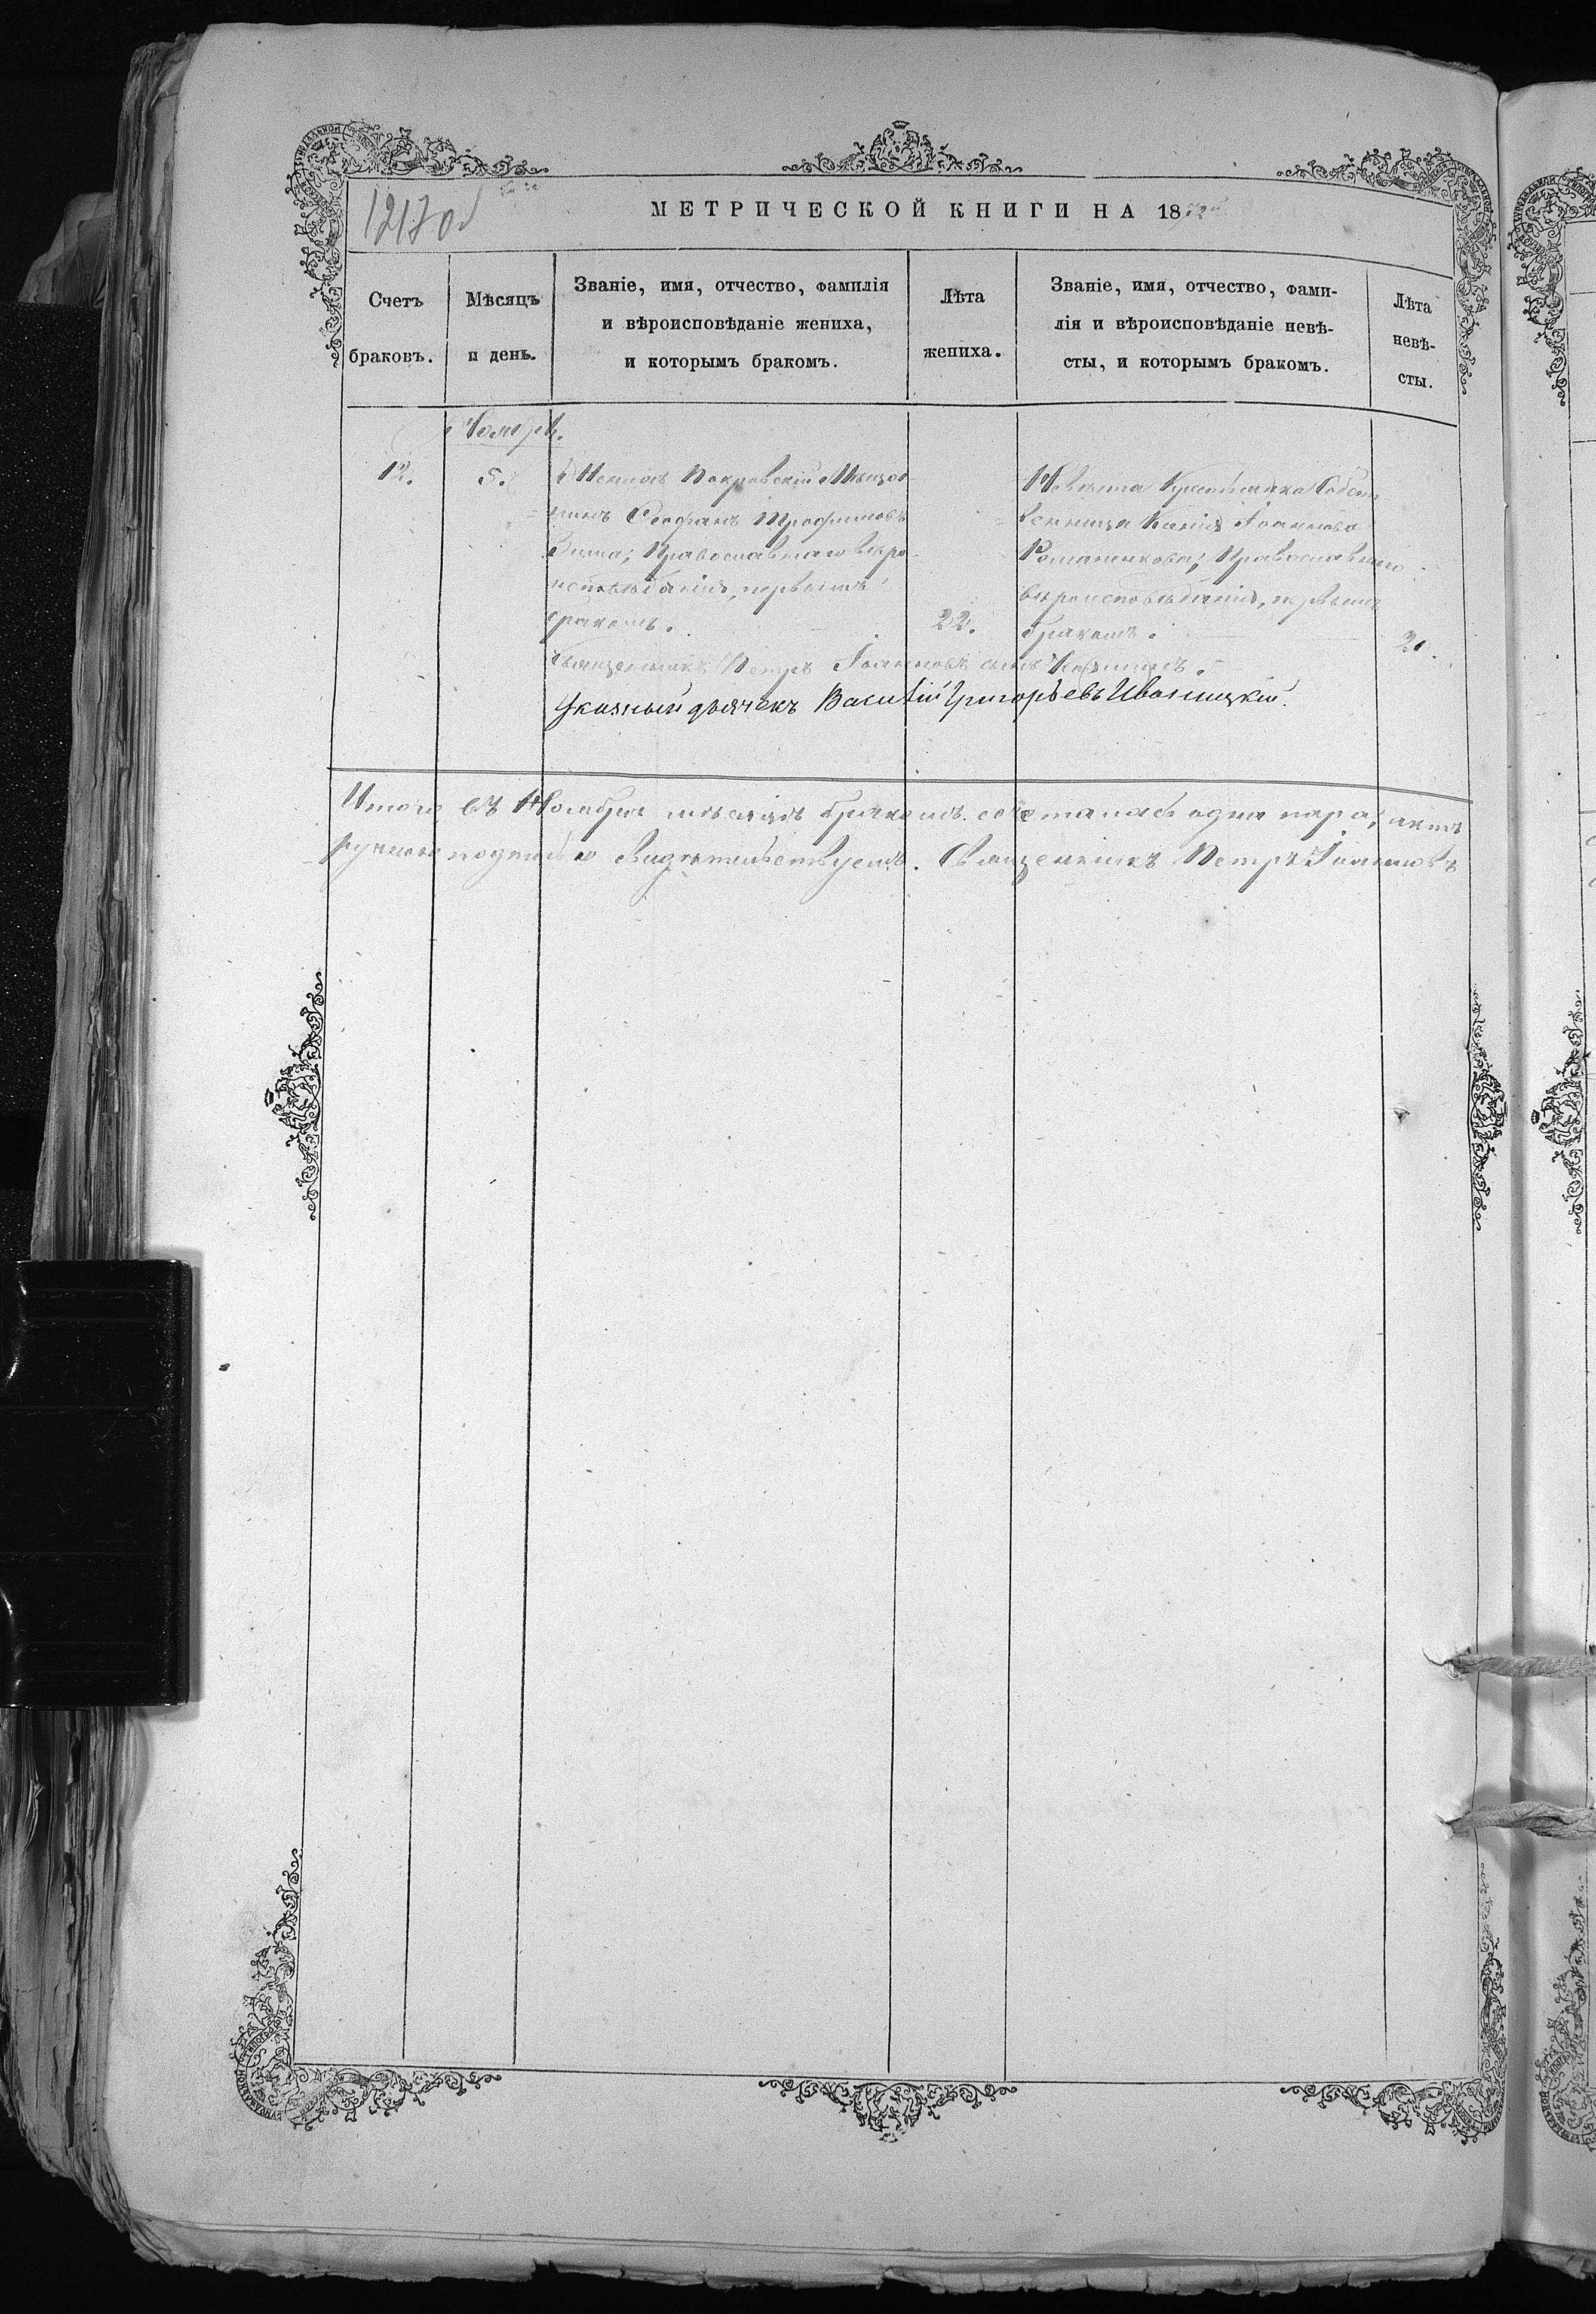 1217об
МЕТРИЧЕСКОЙ КНИГИ НА 1872й
Счетъ браковъ.
Мѣсяцъ и день.
Званіе, имя, отчество, фамилія
и вѣроисповѣданіе жениха,
и которымъ бракомъ.
Лѣта жениха.
Званіе, имя, отчество, фами-
лія и вѣроисповѣданіе невѣ-
сты, и которымъ бракомъ.
Лѣта невѣ-
сты.
Ноябрь.
12.
5.
Женихъ Покровскій Мѣща-
нинъ Ѳеофанъ Трофимовъ
Зима; Православнаго вѣро
исповѣданія, первымъ
бракомъ.
22.
Невѣста Крестьянка Собст
венница Іоаннова
Романенкова; Православнаго
вѣроисповѣданія, первымъ
бракомъ.
20.
Священникъ Петръ Іоанновъ сынъ
Указный дьячекъ Василій Григорьевъ Иваницкій.
Итого въ Ноябрѣ мѣсяцѣ бракомъ сочеталась одна пара;
подписью свидѣтельствуемъ. Священникъ Петръ Іоанновъ